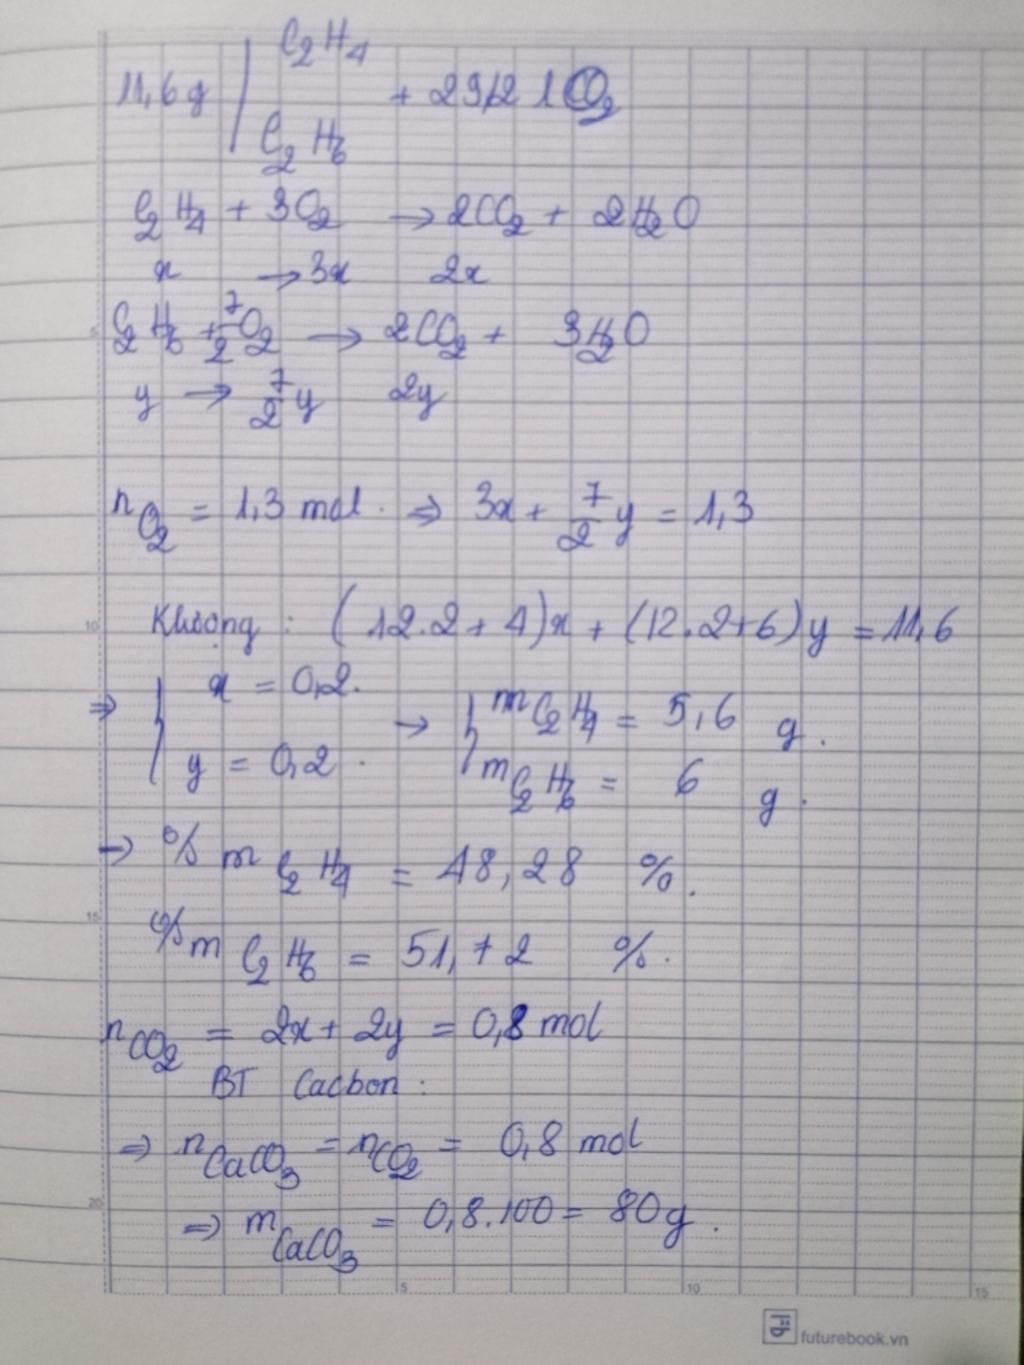 C₂H₄
11,6g + 29,12 l O₂
C₂H₆
C₂H₄ + 3O₂ → 2CO₂ + 2H₂O
x → 3x 2x
C₂H₆ + 7/2 O₂ → 2CO₂ + 3H₂O
y → 7/2 y 2y
nO₂ = 1,3 mol. ⇒ 3x + 7/2 y = 1,3
Khương : (12.2 + 4)x + (12.2+6)y = 11,6
⇒ { x = 0,2. → { mC₂H₄ = 5,6 g.
y = 0,2. mC₂H₆ = 6 g.
→ % m C₂H₄ = 48,28 %.
% m C₂H₆ = 51,72 %.
nCO₂ = 2x + 2y = 0,8 mol
BT Cacbon :
⇒ nCaCO₃ = nCO₂ = 0,8 mol
⇒ mCaCO₃ = 0,8.100 = 80g.
5
10
15
20
5
10
15
futurebook.vn